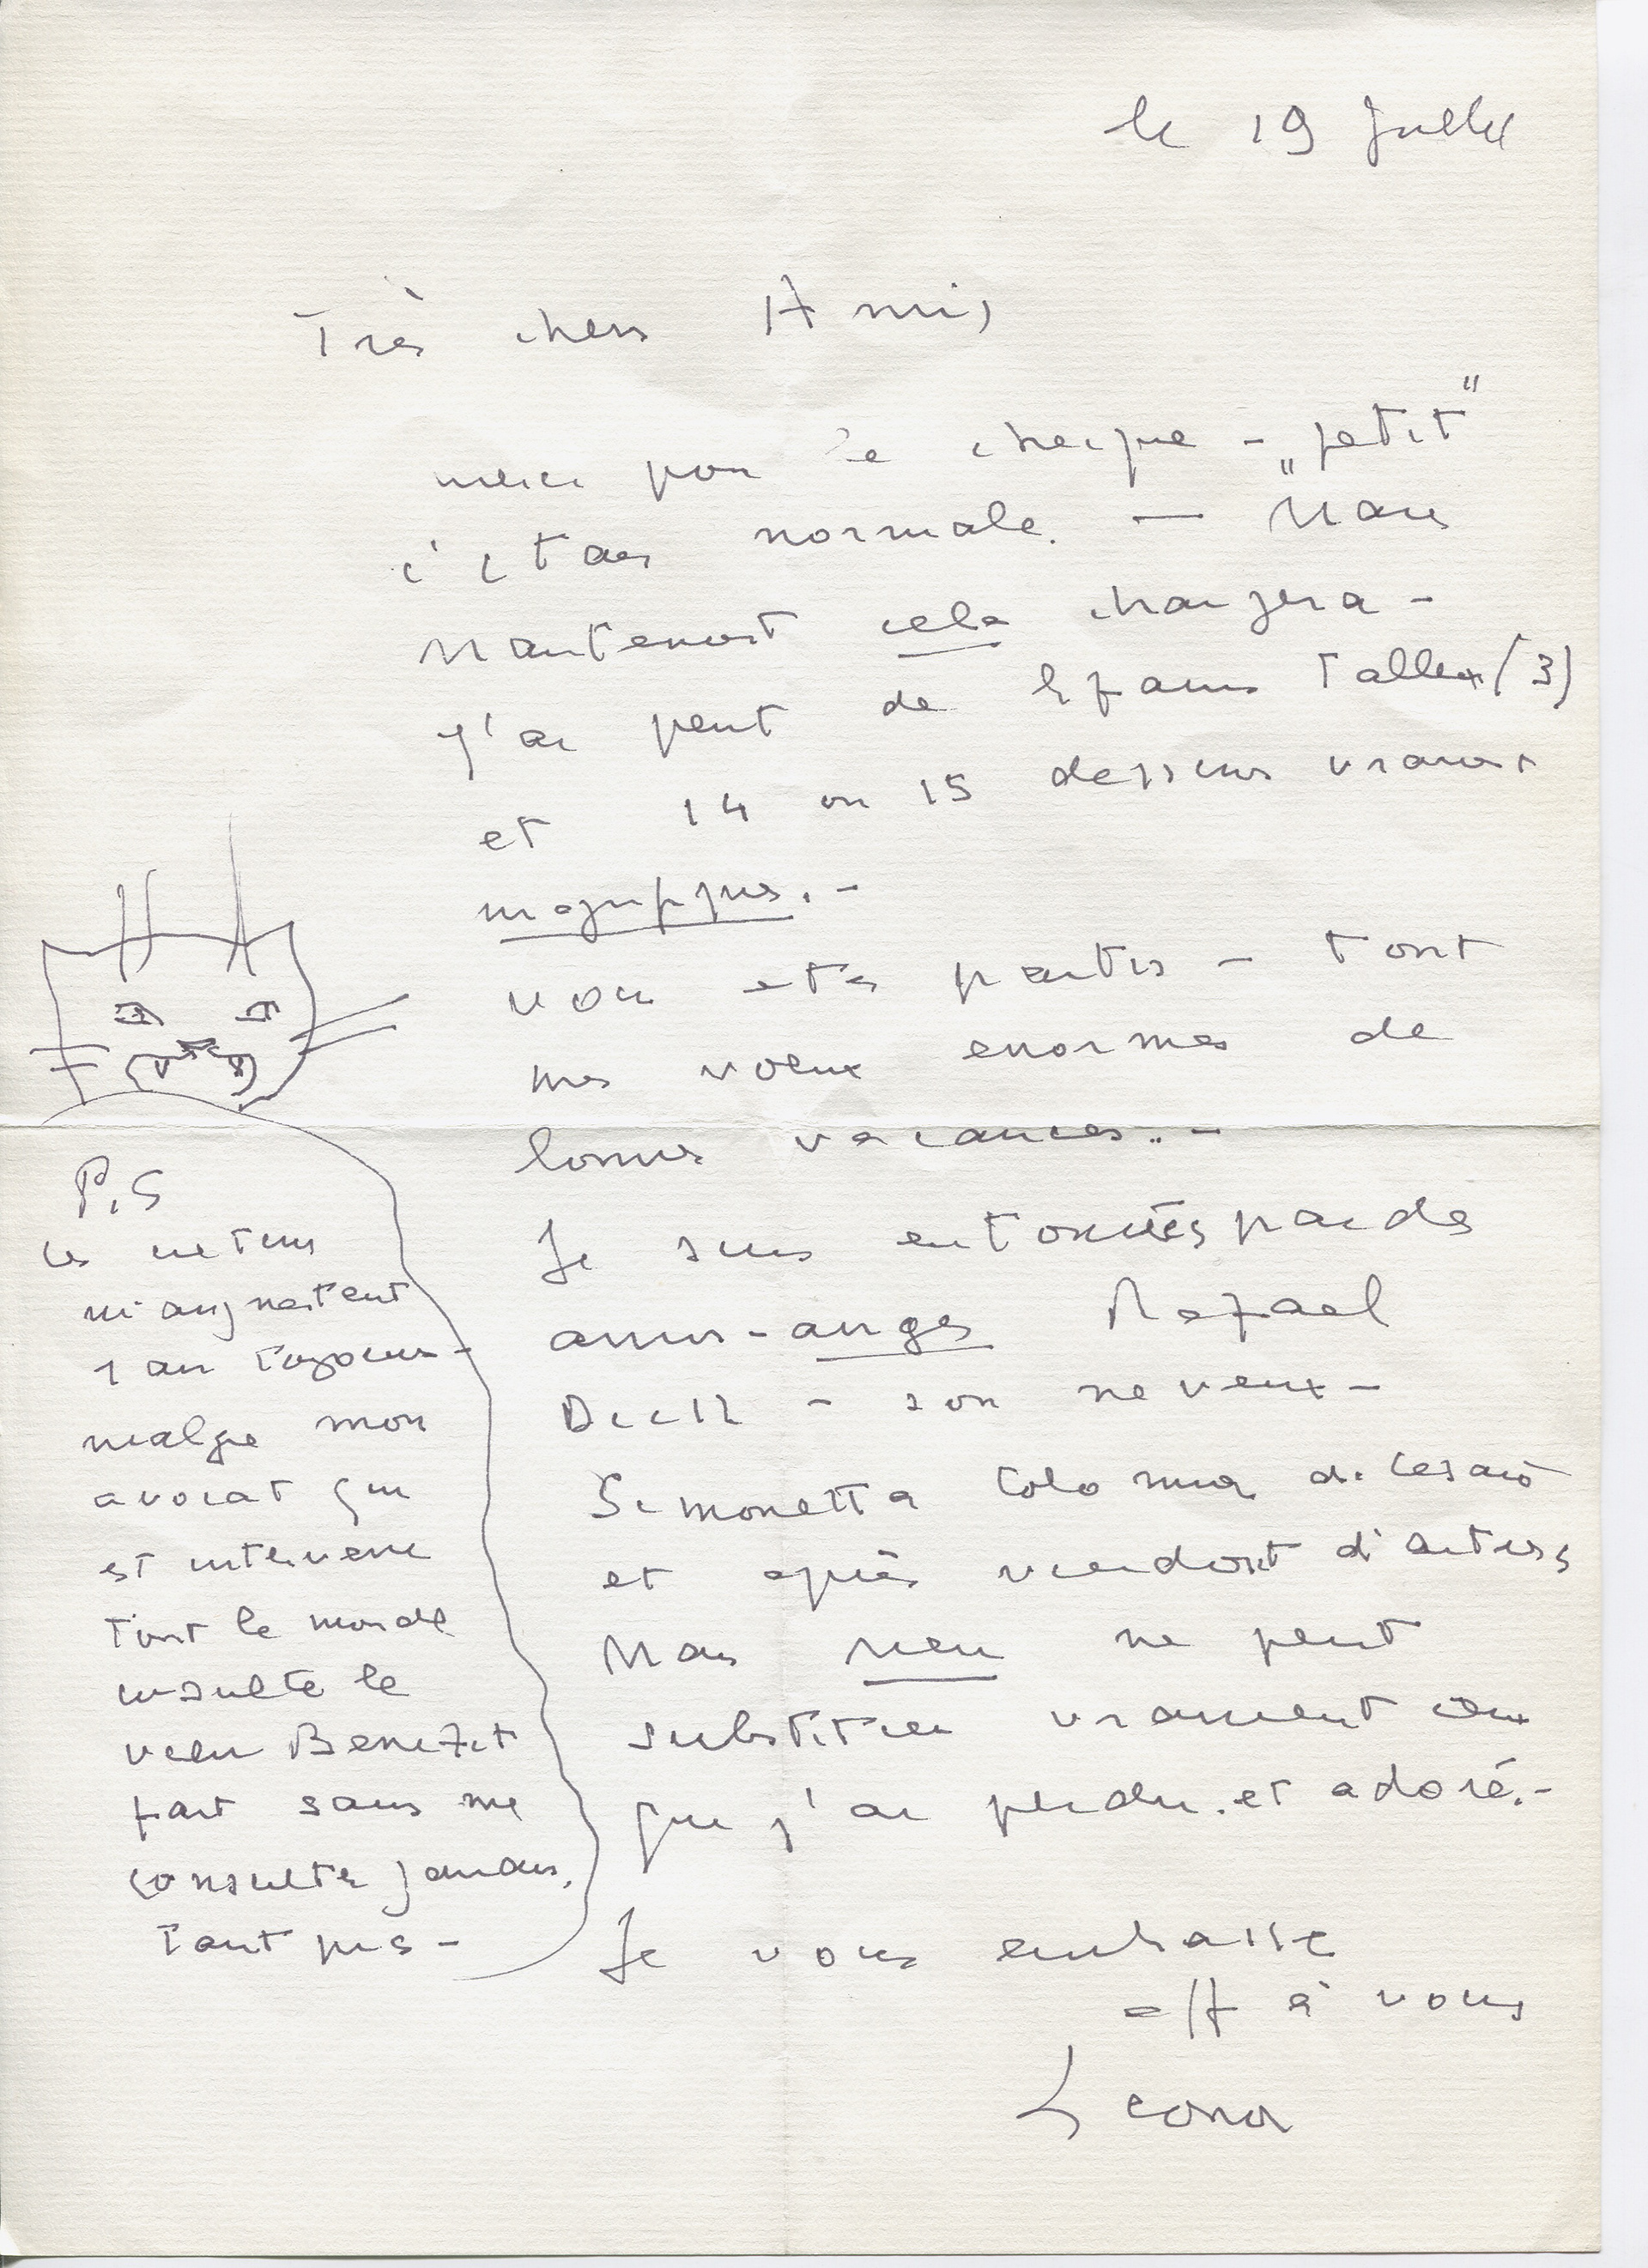 le 19 Juillet
Très chers Amis
merci pour le cheque – „petit"
c'etais normale. — Mais
Maintenant cela changera –
J'ai peint de tableux (3)
et 14 ou 15 dessins vraiment
magnifiques. –
vous etes partis – tout
mes voeux enormes de
bonnes vacances.. –
Je suis entourées par des
amis-anges Rafael
– son neveux –
Simonetta Colonna di Cesarò
et après viendront d'autres
Mais rien ne peut
substituer vraiment ceux
que j'ai perdu. et adoré. –
Je vous embrasse
aff à vous
Leonor
P.S
les
malgre mon
avocat qui
est intervenu
Tout le monde
insulte le
vieu Benezit
fait sans me
consulter jamais.
Tant pis –